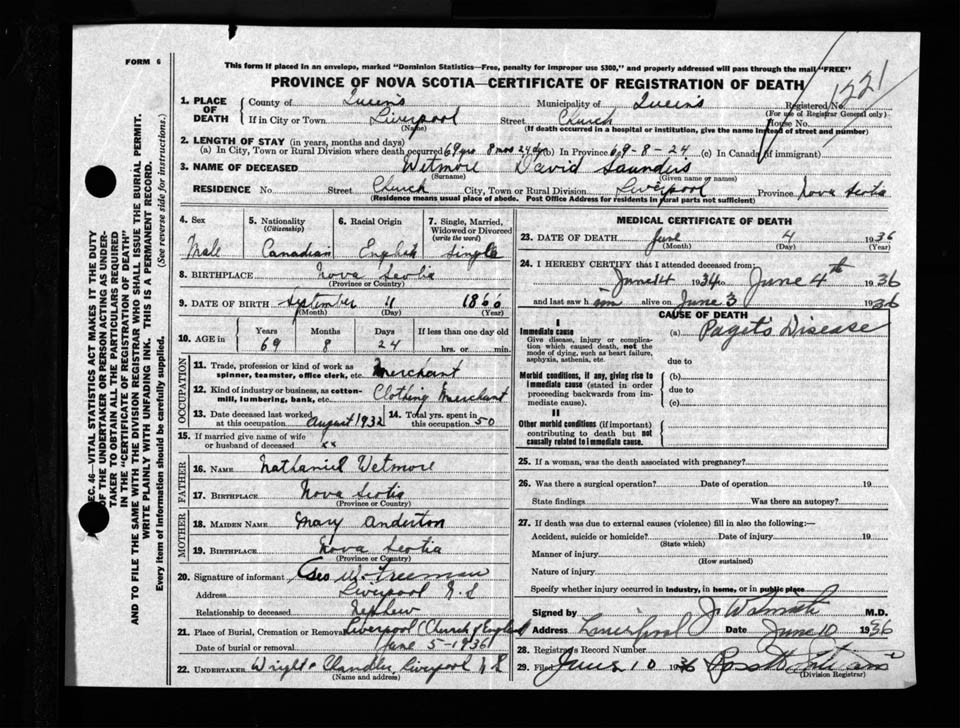 FORM 6
This form if placed in an envelope, marked "Dominion Statistics—Free, penalty for improper use $300," and properly addressed will pass through the mail "FREE"
PROVINCE OF NOVA SCOTIA—CERTIFICATE OF REGISTRATION OF DEATH
1321
1. PLACE OF DEATH
County of Queen's Municipality of Queen's Registered No.
(For use of Registrar General only)
If in City or Town Liverpool Street Church House No.
(Name) (If death occurred in a hospital or institution, give the name instead of street and number)
2. LENGTH OF STAY (in years, months and days)
(a) In City, Town or Rural Division where death occurred 69 yrs 8 mos 24 dys (b) In Province 69-8-24 (c) In Canada (if immigrant)
3. NAME OF DECEASED Wetmore David Saunders
(Surname) (Given name or names)
RESIDENCE No. Street Church City, Town or Rural Division Liverpool Province Nova Scotia
(Residence means usual place of abode. Post Office Address for residents in rural parts not sufficient)
4. Sex 5. Nationality (Citizenship) 6. Racial Origin 7. Single, Married, Widowed or Divorced (write the word)
Male Canadian English Single
8. BIRTHPLACE Nova Scotia
(Province or Country)
9. DATE OF BIRTH September 11 1866
(Month) (Day) (Year)
10. AGE in Years Months Days If less than one day old
69 8 24 hrs. or min.
OCCUPATION
11. Trade, profession or kind of work as spinner, teamster, office clerk, etc. Merchant
12. Kind of industry or business, as cotton-mill, lumbering, bank, etc. Clothing Merchant
13. Date deceased last worked at this occupation August 1932 14. Total yrs. spent in this occupation 50
15. If married give name of wife or husband of deceased xx
FATHER
16. NAME Nathaniel Wetmore
17. BIRTHPLACE Nova Scotia
(Province or Country)
MOTHER
18. MAIDEN NAME Mary Anderton
19. BIRTHPLACE Nova Scotia
(Province or Country)
20. Signature of informant Geo W. Freeman
Address Liverpool N.S
Relationship to deceased Nephew
21. Place of Burial, Cremation or Removal Liverpool (Church of England)
Date of burial or removal June 5-1936
22. UNDERTAKER Wright & Chandler, Liverpool N.S.
(Name and address)
MEDICAL CERTIFICATE OF DEATH
23. DATE OF DEATH June 4 1936
(Month) (Day) (Year)
24. I HEREBY CERTIFY that I attended deceased from:
June 14 1934 to June 4th 1936
and last saw him alive on June 3 1936
CAUSE OF DEATH
I
Immediate cause (a) Paget's Disease
Give disease, injury or complication which caused death, not the mode of dying, such as heart failure, asphyxia, asthenia, etc.
due to
Morbid conditions, if any, giving rise to immediate cause (stated in order proceeding backwards from immediate cause).
(b)
due to
(c)
II
Other morbid conditions (if important) contributing to death but not causally related to immediate cause.
25. If a woman, was the death associated with pregnancy?
26. Was there a surgical operation? Date of operation 19
State findings Was there an autopsy?
27. If death was due to external causes (violence) fill in also the following:—
Accident, suicide or homicide? Date of injury 19
(State which)
Manner of injury
(How sustained)
Nature of injury
Specify whether injury occurred in Industry, in home, or in public place
Signed by M.D.
Address Liverpool Date June 10 1936
28. Registrar's Record Number
29. Filed June 10 1936
(Division Registrar)
SEC. 46—VITAL STATISTICS ACT MAKES IT THE DUTY
OF THE UNDERTAKER OR PERSON ACTING AS UNDER-
TAKER TO OBTAIN ALL THE PARTICULARS REQUIRED
IN THE "CERTIFICATE OF REGISTRATION OF DEATH"
AND TO FILE THE SAME WITH THE DIVISION REGISTRAR WHO SHALL ISSUE THE BURIAL PERMIT.
WRITE PLAINLY WITH UNFADING INK. THIS IS A PERMANENT RECORD.
Every item of information should be carefully supplied. (See reverse side for instructions.)